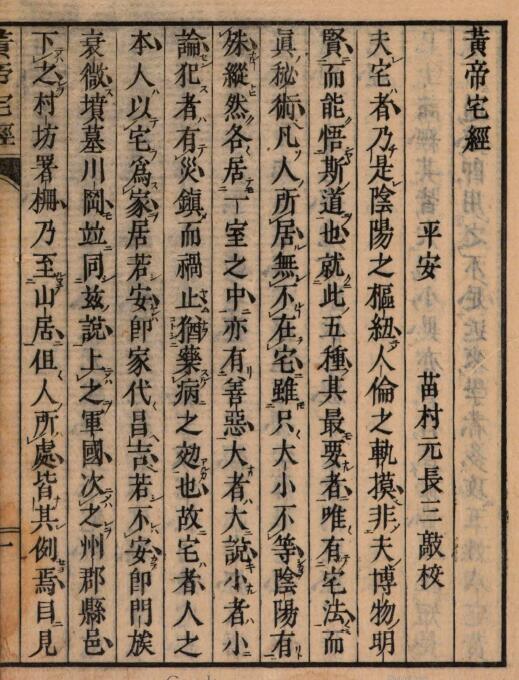 黃帝宅經
平安　苗村元長三敲校
夫宅者乃是陰陽之樞紐人倫之軌摸非夫博物明
賢而能悟斯道也就此五種其最要者唯有宅法而
眞秘術凡人所居無不在宅雖只大小不等陰陽有
殊縱然各居一室之中亦有善惡大者大說小者小
論犯者有災鎮而禍止猶藥病之効也故宅者人之
本人以宅爲家居若安即家代昌吉若不安即門族
衰微墳墓川岡竝同茲說上之軍國次之州郡縣邑
下之村坊署柵乃至山居但人所處皆其例焉目見
黃帝宅經
一